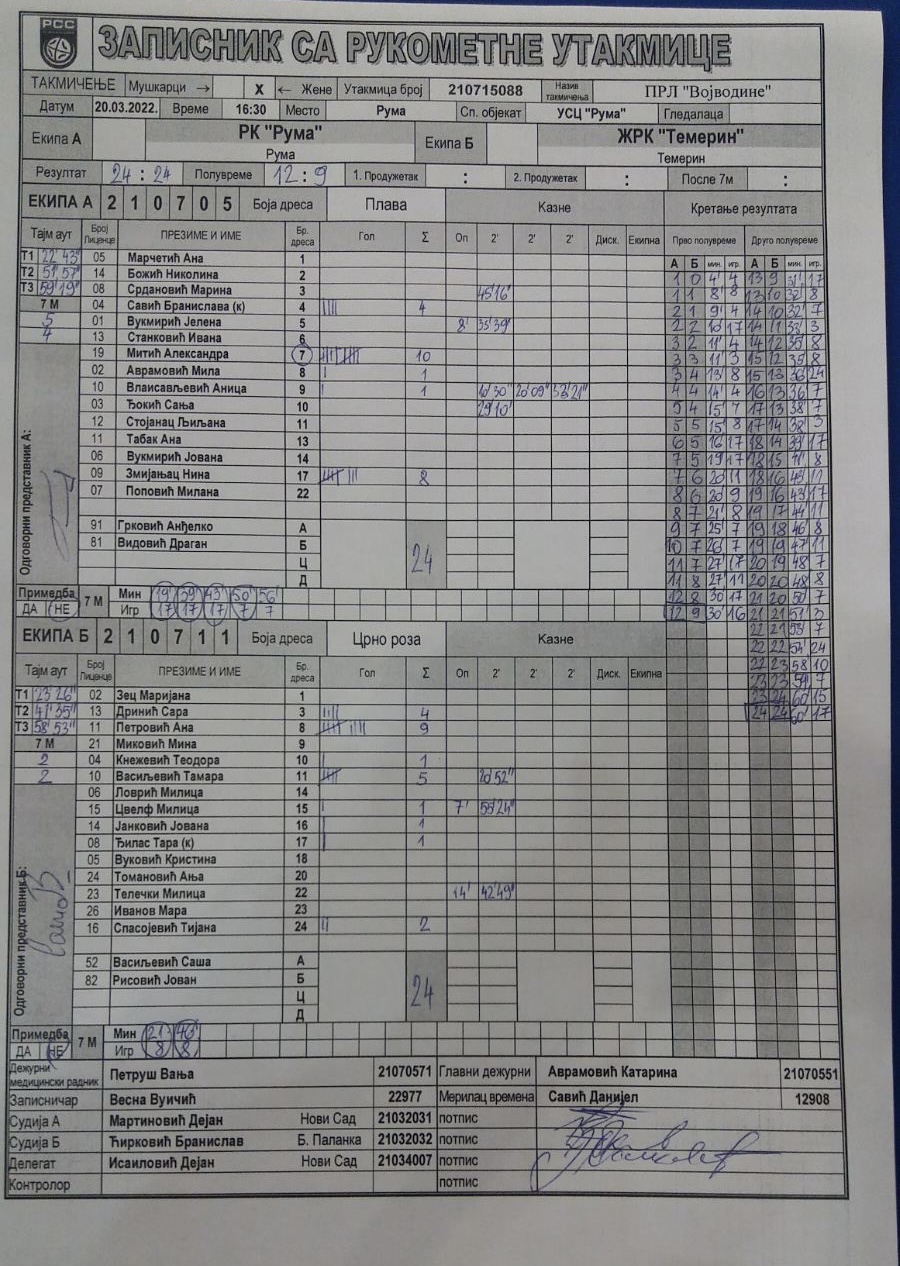 РСС
ЗАПИСНИК СА РУКОМЕТНЕ УТАКМИЦЕ
ТАКМИЧЕЊЕ Мушкарци → X ← Жене Утакмица број 210715088 Назив такмичења ПРЛ "Војводине"
Датум 20.03.2022. Време 16:30 Место Рума Сп. објекат УСЦ "Рума" Гледалаца
Екипа А РК "Рума" Екипа Б ЖРК "Темерин"
Рума Темерин
Резултат 24 : 24 Полувреме 12 : 9 1. Продужетак : 2. Продужетак : После 7м :
ЕКИПА А 2 1 0 7 0 5 Боја дреса Плава Казне Кретање резултата
Тајм аут Број Лиценце ПРЕЗИМЕ И ИМЕ Бр. дреса Гол Σ Оп 2' 2' 2' Диск. Екипна Прво полувреме Друго полувреме
А Б мин. игр. А Б мин. игр.
Т1 22' 43" 05 Марчетић Ана 1
Т2 51' 57" 14 Божић Николина 2
Т3 59' 19" 08 Срдановић Марина 3 45'16"
7 М 04 Савић Бранислава (к) 4 |||| 4
5 01 Вукмирић Јелена 5 8' 35'39"
4 13 Станковић Ивана 6
19 Митић Александра 7 10
02 Аврамовић Мила 8 | 1
10 Влаисављевић Аница 9 | 1 10'30" 20'09" 53'21"
03 Ђокић Сања 10 29'10"
12 Стојанац Љиљана 11
11 Табак Ана 13
06 Вукмирић Јована 14
09 Змијањац Нина 17 8
07 Поповић Милана 22
91 Грковић Анђелко А
81 Видовић Драган Б
24
Ц
Д
Одговорни представник А:
Примедба ДА НЕ 7 М Мин 19' 39' 43' 50' 56'
Игр 17 17 17 7 7
1 0 4' 4
1 1 8' 8
2 1 9' 4
2 2 10' 17
3 2 11' 4
3 3 11' 3
3 4 13' 8
4 4 14' 4
5 4 15' 7
5 5 15' 8
6 5 16' 17
7 5 19' 17
7 6 20' 11
8 6 20' 9
8 7 21' 8
9 7 25' 7
10 7 26' 7
11 7 27' 17
11 8 27' 11
12 8 30' 17
12 9 30' 16
13 9 31' 17
13 10 32' 8
14 10 32' 7
14 11 33' 3
14 12 35' 8
15 12 35' 8
15 13 36' 24
16 13 36' 7
17 13 38' 7
17 14 38' 3
18 14 39' 17
18 15 41' 8
18 16 43' 11
19 16 43' 17
19 17 44' 11
19 18 46' 8
19 19 47' 11
20 19 48' 7
20 20 48' 8
21 20 50' 7
21 21 51' 3
22 21 53' 7
22 22 54' 24
22 23 58' 10
23 23 59' 7
23 24 60' 15
24 24 60' 17
ЕКИПА Б 2 1 0 7 1 1 Боја дреса Црно роза Казне
Тајм аут Број Лиценце ПРЕЗИМЕ И ИМЕ Бр. дреса Гол Σ Оп 2' 2' 2' Диск. Екипна
Т1 23' 26" 02 Зец Маријана 1
Т2 41' 35" 13 Дринић Сара 3 |||| 4
Т3 58' 53" 11 Петровић Ана 8 9
7 М 21 Миковић Мина 9
2 04 Кнежевић Теодора 10 | 1
2 10 Васиљевић Тамара 11 5 20'52"
06 Ловрић Милица 14
15 Цвелф Милица 15 | 1 7' 55'24"
14 Јанковић Јована 16 | 1
08 Ђилас Тара (к) 17 | 1
05 Вуковић Кристина 18
24 Томановић Ања 20
23 Телечки Милица 22 14' 42'49"
26 Иванов Мара 23
16 Спасојевић Тијана 24 || 2
52 Васиљевић Саша А
82 Рисовић Јован Б
24
Ц
Д
Одговорни представник Б:
Примедба ДА НЕ 7 М Мин 21' 46'
Игр 8 8
Дежурни медицински радник Петруш Вања 21070571 Главни дежурни Аврамовић Катарина 21070551
Записничар Весна Вуичић 22977 Мерилац времена Савић Данијел 12908
Судија А Мартиновић Дејан Нови Сад 21032031 потпис
Судија Б Ћирковић Бранислав Б. Паланка 21032032 потпис
Делегат Исаиловић Дејан Нови Сад 21034007 потпис
Контролор потпис